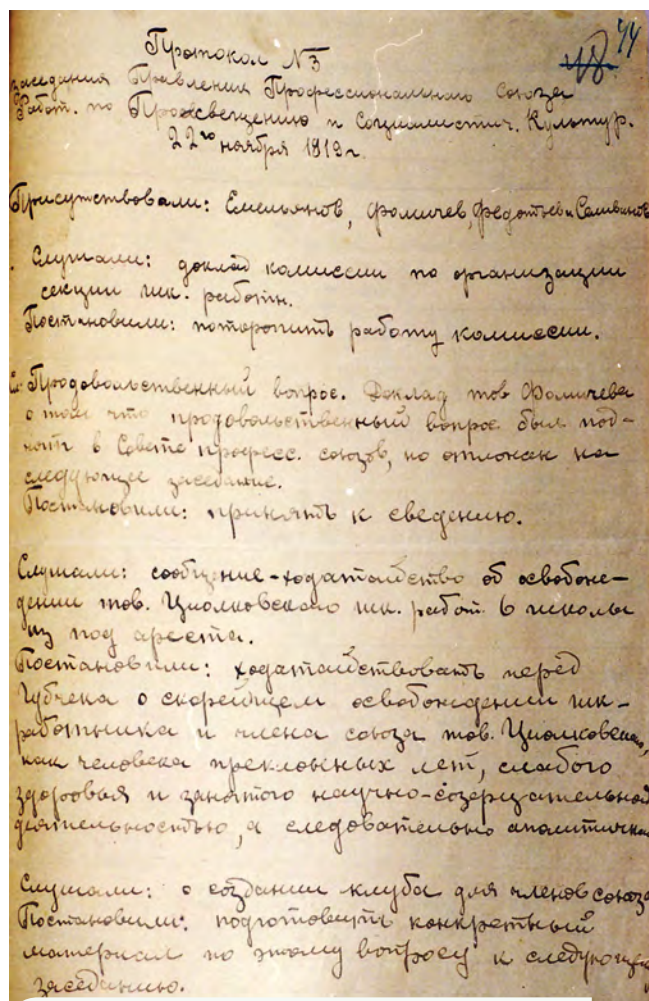 44
48
Протокол №3
заседания Правления Профессионального Союза
Работ. по Просвещению и Социалистич. Культур.
22го ноября 1919г.
Присутствовали: Емельянов, Фомичев, Федотьев и Селиванов
Слушали: доклад комиссии по организации
секции шк. работн.
Постановили: поторопить работу комиссии.
Продовольственный вопрос. Доклад тов Фомичева
о том что продовольственный вопрос был под-
нят в Совете професс. союзов, но отложен на
следующее заседание.
Постановили: принять к сведению.
Слушали: сообщение-ходатайство об освобож-
дении тов. Циолковского шк. работ. 6 школы
из под ареста.
Постановили: ходатайствовать перед
Губчека о скорейшем освобождении шк-
работника и члена союза тов. Циолковского,
как человека преклонных лет, слабого
здоровья и занятого научно-созерцательной
деятельностью, а следовательно аполитичн
Слушали: о создании клуба для членов союза
Постановили: подготовить конкретный
материал по этому вопросу к следующем
заседанию.